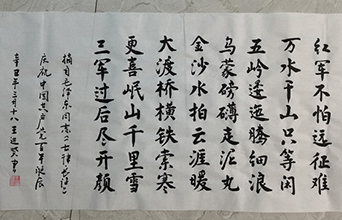 红军不怕远征难
万水千山只等闲
五岭逶迤腾细浪
乌蒙磅礴走泥丸
金沙水拍云涯暖
大渡桥横铁索寒
更喜岷山千里雪
三军过后尽开颜
摘自毛泽东同志七律长征
庆祝中国共产党百年诞辰
辛丑年